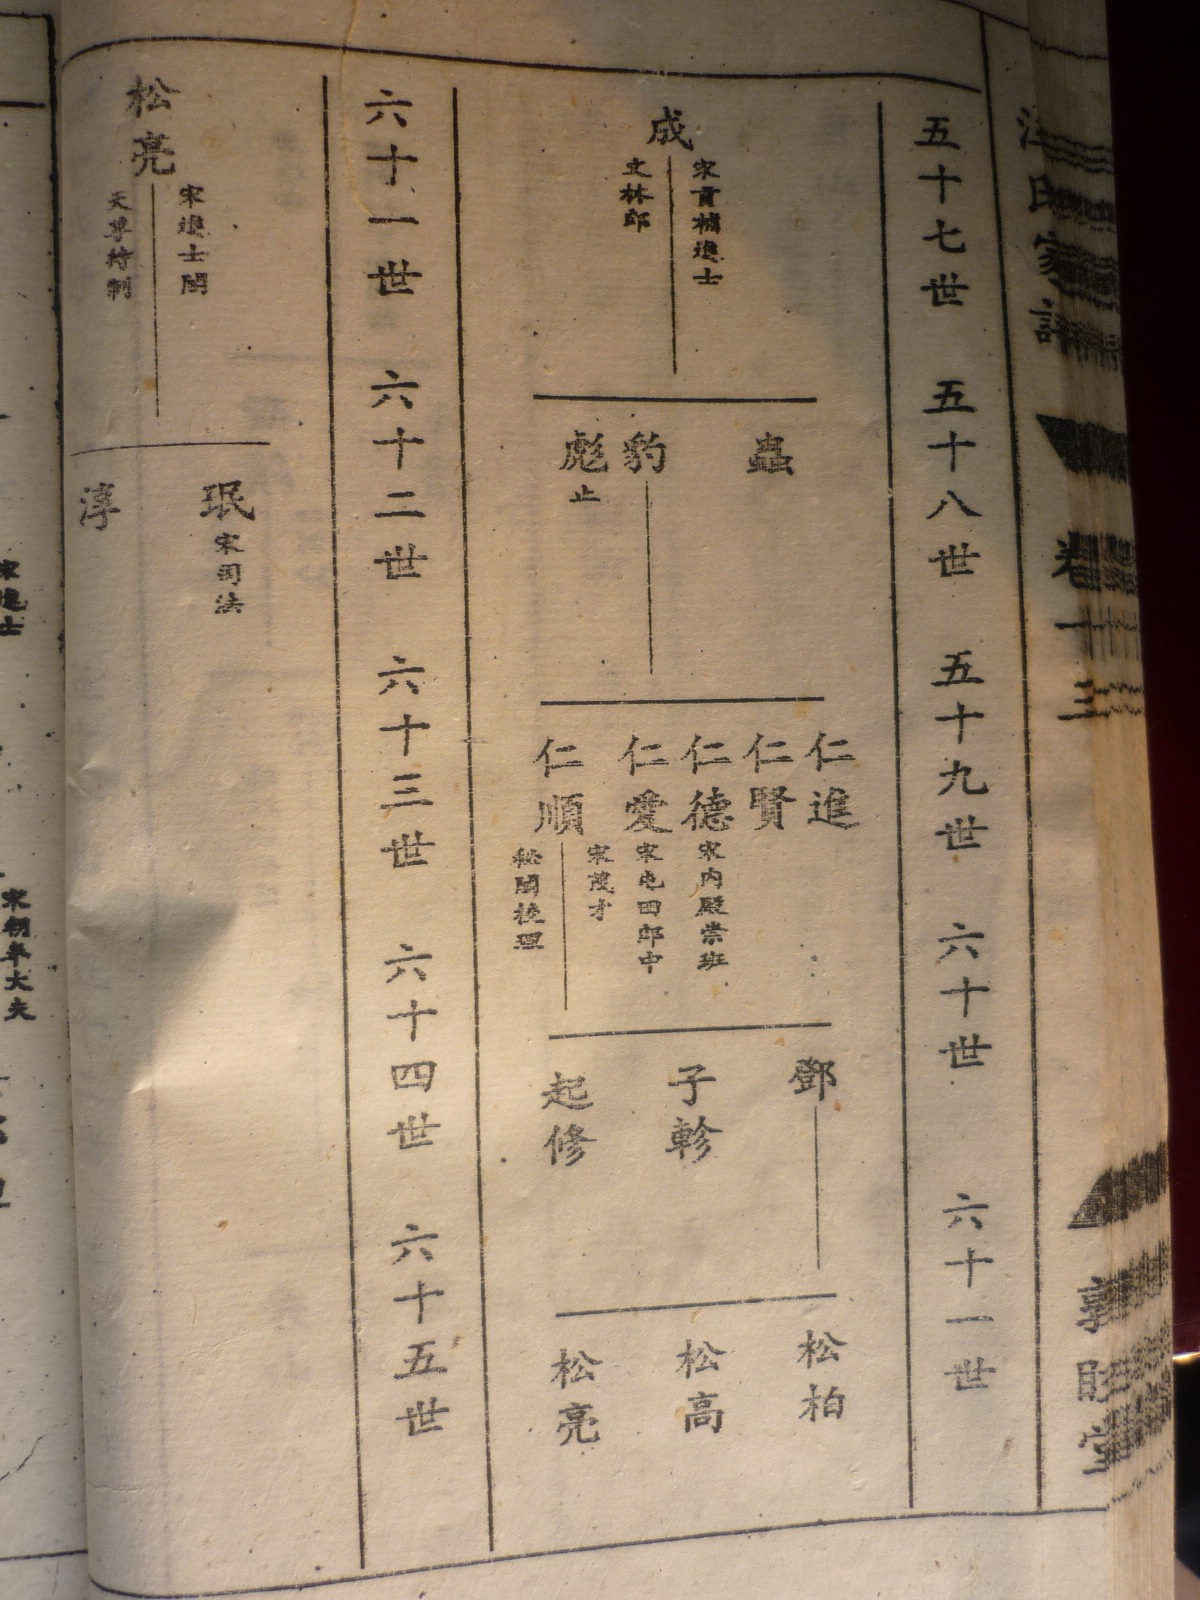 氏家譜
卷十三
五十七世 五十八世 五十九世 六十世 六十一世
成
宋貢補進士
文林郎
蝨
豹
彪
止
仁進
仁賢
仁德
宋內殿崇班
仁愛
宋屯田郎中
仁順
宋茂才
秘閣校理
鄧
子軫
起修
松柏
松高
松亮
六十一世 六十二世 六十三世 六十四世 六十五世
松亮
宋進士閣
天章待制
珉
宋司法
淳
宋進士
宋朝奉大夫